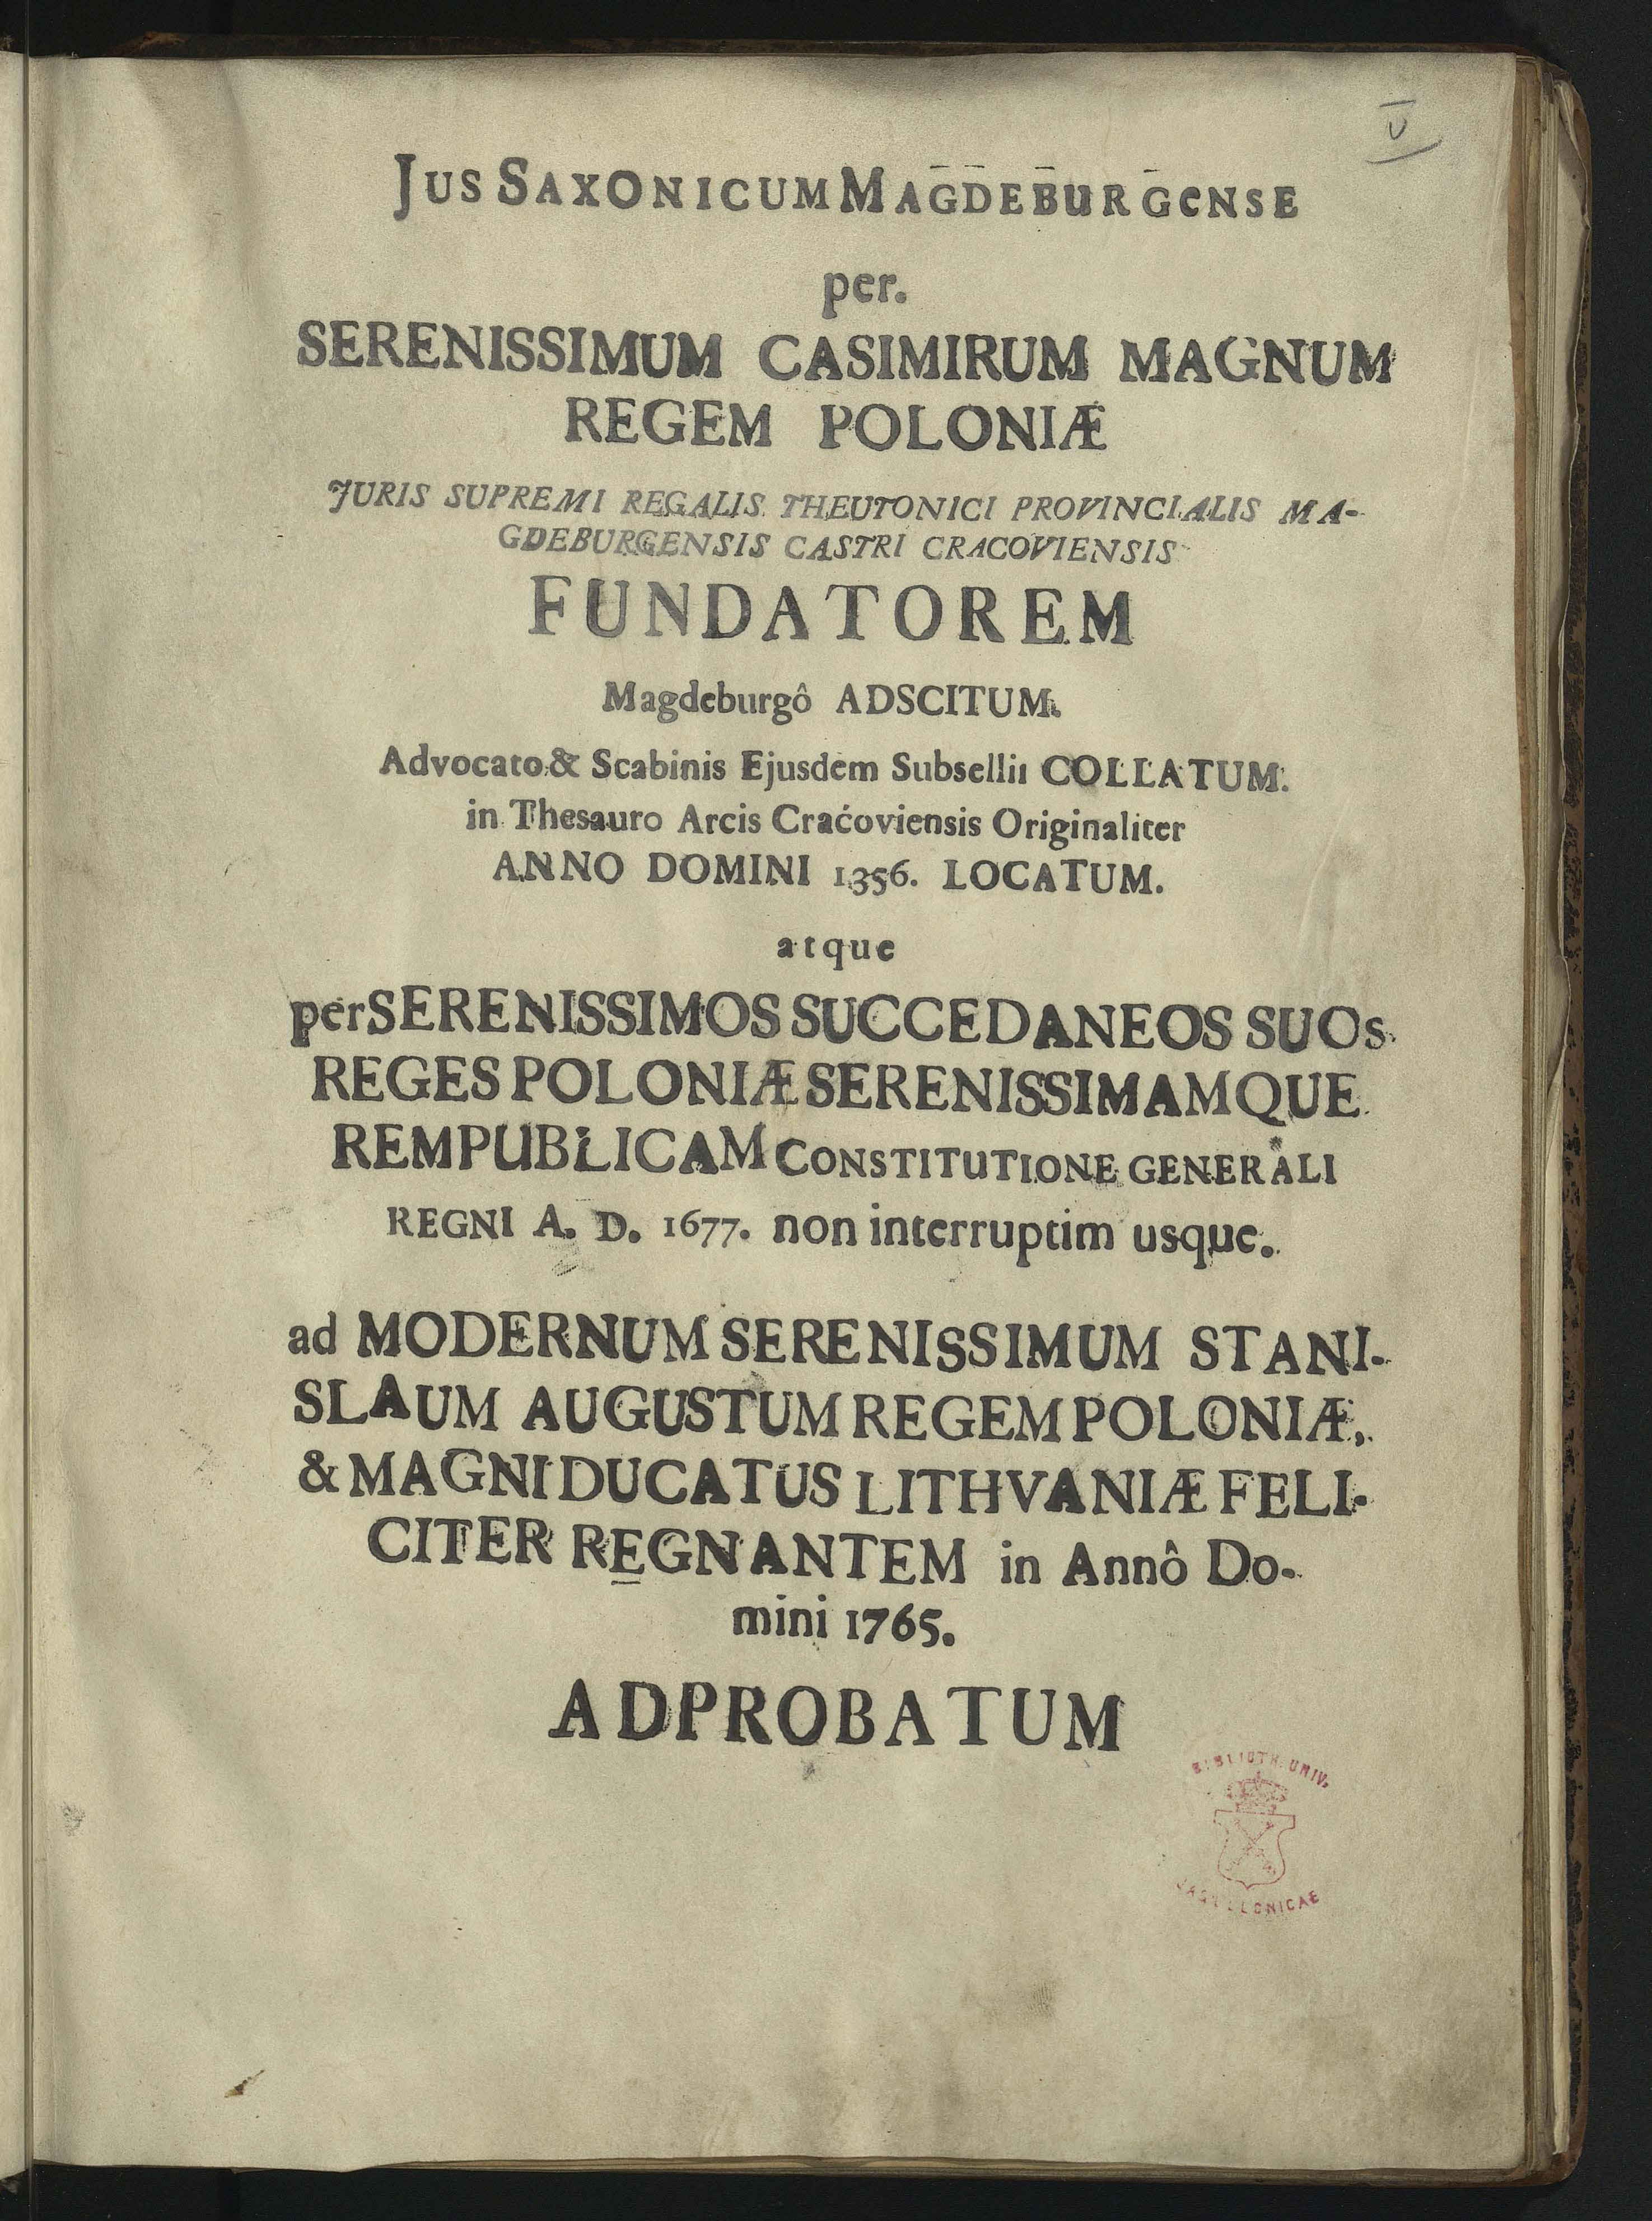 V
JUS SAXONICUM MAGDEBURGENSE
per.
SERENISSIMUM CASIMIRUM MAGNUM
REGEM POLONIÆ
JURIS SUPREMI REGALIS THEUTONICI PROVINCIALIS MA-
GDEBURGENSIS CASTRI CRACOVIENSIS
FUNDATOREM
Magdeburgô ADSCITUM.
Advocato & Scabinis Ejusdem Subsellii COLLATUM.
in Thesauro Arcis Craćoviensis Originaliter
ANNO DOMINI 1356. LOCATUM.
atque
per SERENISSIMOS SUCCEDANEOS SUOS
REGES POLONIÆ SERENISSIMAMQUE
REMPUBLICAM CONSTITUTIONE GENERALI
REGNI A. D. 1677. non interruptim usque.
ad MODERNUM SERENISSIMUM STANI-
SLAUM AUGUSTUM REGEM POLONIÆ,
& MAGNI DUCATUS LITHVANIÆ FELI-
CITER REGNANTEM in Annô Do-
mini 1765.
ADPROBATUM
BIBLIOTH. UNIV.
JAGELLONICAE